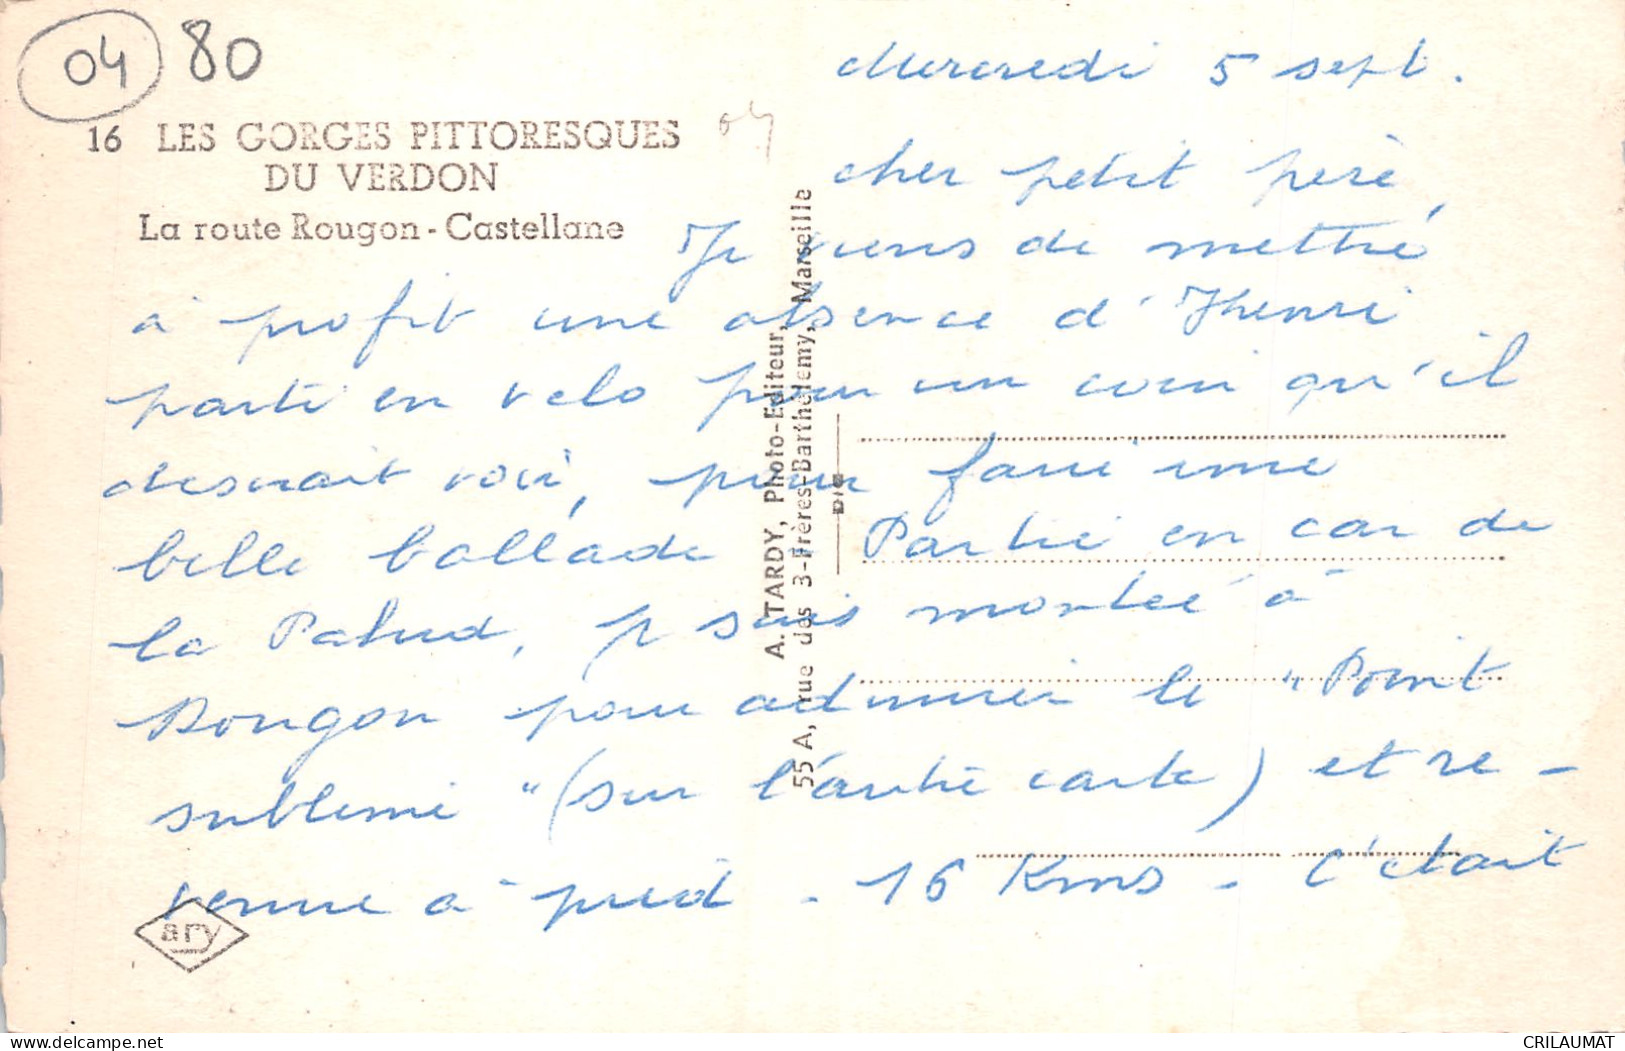 04 80
16 LES GORGES PITTORESQUES
DU VERDON
La route Rougon - Castellane
04
A. TARDY, Photo-Editeur,
55 A, rue des 3-Frères-Barthélemy, Marseille
Mercredi 5 sept.
cher petit père,
Je viens de mettre
à profit une absence d'Henri
parti en vélo pour un coin qu'il
désirait voir, pour faire une
belle ballade - Partie en car de
la Palud, je suis montée à
Rougon pour admirer le "Point
sublime" (sur l'autre carte) et re-
venue à pied - 16 Kms - C'était
ary
CRILAUMAT